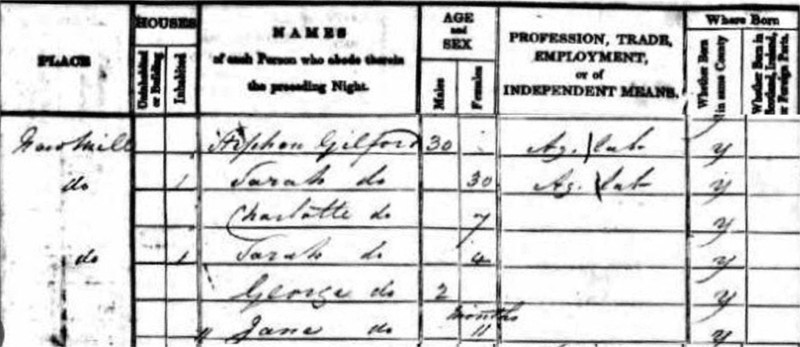 PLACE
HOUSES
Uninhabited or Building
Inhabited
NAMES
of each Person who abode therein
the preceding Night.
AGE
and
SEX
Males
Females
PROFESSION, TRADE,
EMPLOYMENT,
or of
INDEPENDENT MEANS.
Where Born
Whether Born in same County
Whether Born in Scotland, Ireland, or Foreign Parts.
Stephen Gilford 30 Ag. lab y
do 1 Sarah do 30 Ag. lab y
Charlotte do 7 y
do 1 Sarah do 4 y
George do 2 y
Jane do 11 months y